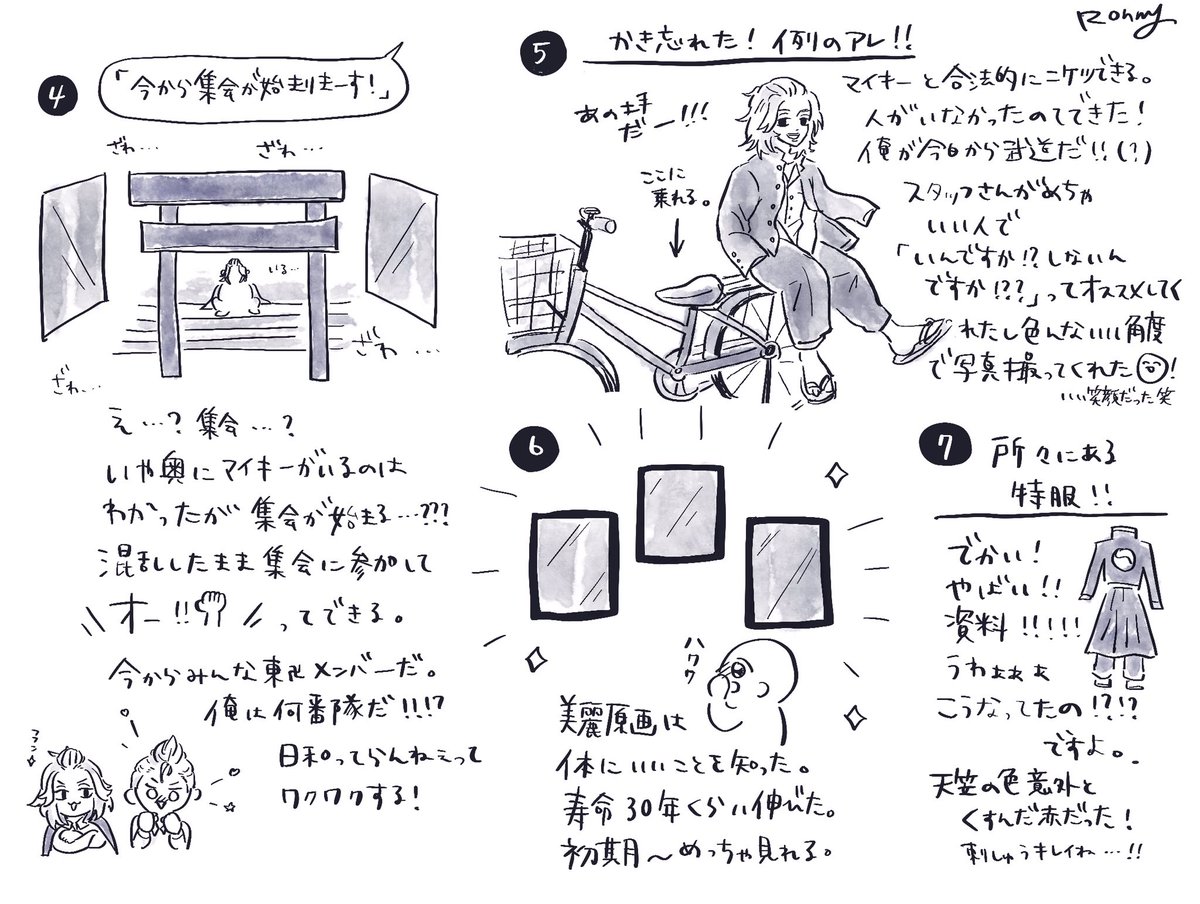 Rohmy
4
「今から集会が始まりまーす!」
ざわ…
ざわ…
いる…
ざわ…
ざわ…
え…?集会…?
いや奥にマイキーがいるのは
わかったが集会が始まる…???
混乱したまま集会に参加して
オー!! ってできる。
今からみんな東卍メンバーだ。
俺は何番隊だ!!!?
日和ってらんねえって
ワクワクする!
フフン
5
かき忘れた!例のアレ!!
あの土手
だー!!!
ここに
乗れる。
マイキーと合法的にニケツできる。
人がいなかったのでできた!
俺が今日から武道だ!!(?)
スタッフさんがめちゃ
いい人で
「いんですか!?しないん
ですか!??」ってオススメしてく
れたし色んないい角度
で写真撮ってくれた!
いい笑顔だった笑
6
ハワワ
美麗原画は
体にいいことを知った。
寿命30年くらい伸びた。
初期〜めっちゃ見れる。
7
所々にある
特服!!
でかい!
やばい!!
資料!!!!!
うわぁぁぁ
こうなってたの!?!?
ですよ。
天竺の色意外と
くすんだ赤だった!
刺しゅうキレイね…!!